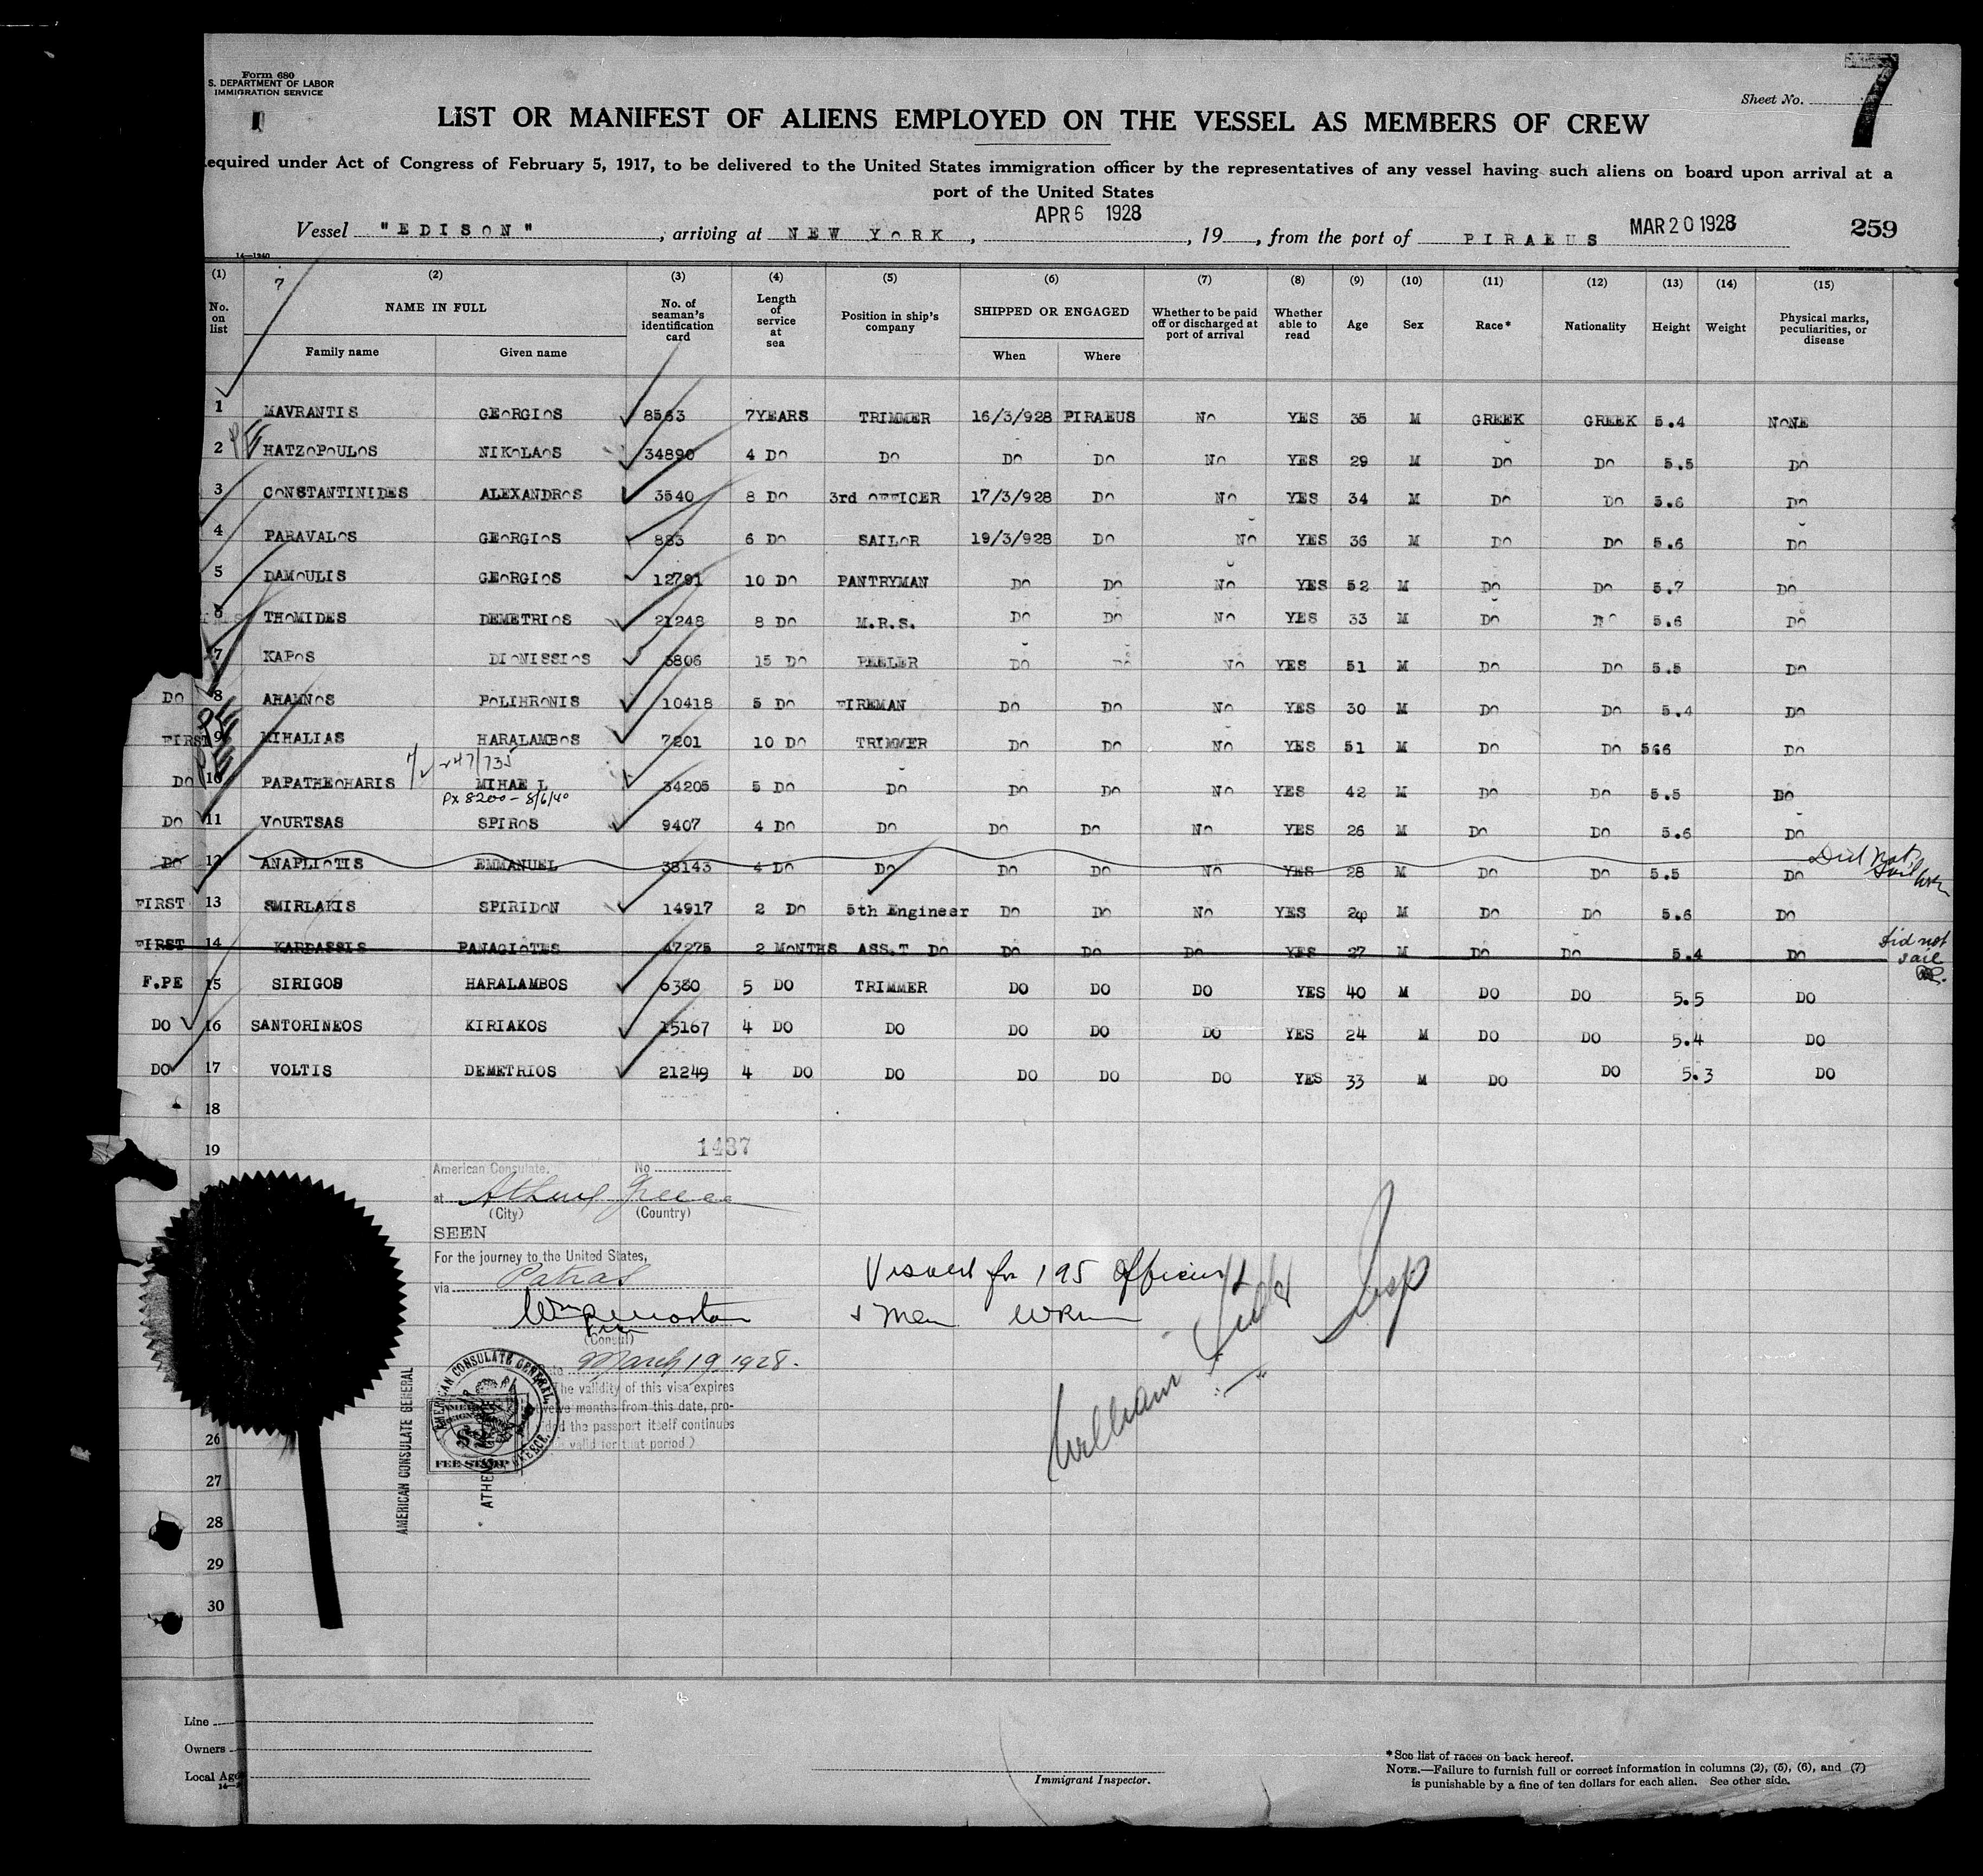 Form 680
S. DEPARTMENT OF LABOR
IMMIGRATION SERVICE
Sheet No. 7
LIST OR MANIFEST OF ALIENS EMPLOYED ON THE VESSEL AS MEMBERS OF CREW
equired under Act of Congress of February 5, 1917, to be delivered to the United States immigration officer by the representatives of any vessel having such aliens on board upon arrival at a
port of the United States
Vessel "EDISON", arriving at NEW YORK, APR 6 1928, 19, from the port of PIRAEUS MAR 20 1928 259
(1) (2) (3) (4) (5) (6) (7) (8) (9) (10) (11) (12) (13) (14) (15)
No. on list NAME IN FULL No. of seaman's identification card Length of service at sea Position in ship's company SHIPPED OR ENGAGED Whether to be paid off or discharged at port of arrival Whether able to read Age Sex Race* Nationality Height Weight Physical marks, peculiarities, or disease
Family name Given name When Where
1 MAVRANTIS GEORGIOS 8563 7YEARS TRIMMER 16/3/928 PIRAEUS No YES 35 M GREEK GREEK 5.4 NONE
2 HATZOPOULOS NIKOLAOS 34890 4 Do Do Do Do No YES 29 M Do Do 5.5 Do
3 CONSTANTINIDES ALEXANDROS 3540 8 Do 3rd OFFICER 17/3/928 Do No YES 34 M Do Do 5.6 Do
4 PARAVALOS GEORGIOS 883 6 Do SAILOR 19/3/928 Do No YES 36 M Do Do 5.6 Do
5 DAMOULIS GEORGIOS 12791 10 Do PANTRYMAN Do Do No YES 52 M Do Do 5.7 Do
6 THOMIDES DEMETRIOS 21248 8 Do M.R.S. Do Do No YES 33 M Do Do 5.6 Do
7 KAPOS DIONISSIOS 3806 15 Do PEELER Do Do No YES 51 M Do Do 5.5 Do
Do 8 AHAMNOS POLIHRONIS 10418 5 Do FIREMAN Do Do No YES 30 M Do Do 5.4 Do
FIRST 9 MIHALIAS HARALAMBOS 7201 10 Do TRIMMER Do Do No YES 51 M Do Do 566 Do
247/735
Do 10 PAPATHEOHARIS MIHAEL 34205 5 Do Do Do Do No YES 42 M Do Do 5.5 Do
Px 8200 - 8/6/40
Do 11 VOURTSAS SPIROS 9407 4 Do Do Do Do No YES 26 M Do Do 5.6 Do
Do 12 ANAPLIOTIS EMMANUEL 38143 4 Do Do Do Do No YES 28 M Do Do 5.5 Do Did not sail
FIRST 13 SMIRLAKIS SPIRIDON 14917 2 Do 5th Engineer Do Do No YES 24 M Do Do 5.6 Do
FIRST 14 KARDASSIS PANAGIOTES 47275 2 MONTHS ASS.T Do Do Do Do YES 27 M Do Do 5.4 Do did not sail
F.PE 15 SIRIGOS HARALAMBOS 6380 5 DO TRIMMER DO DO DO YES 40 M DO DO 5.5 DO
DO 16 SANTORINEOS KIRIAKOS 15167 4 DO DO DO DO DO YES 24 M DO DO 5.4 DO
DO 17 VOLTIS DEMETRIOS 21249 4 DO DO DO DO DO YES 33 M DO DO 5.3 DO
18
19
1437
American Consulate. No
at Athens Greece
(City) (Country)
SEEN
For the journey to the United States,
via Patras
(Consul)
March 19, 1928.
The validity of this visa expires
twelve months from this date, pro-
ided the passport itself continues
valid for that period.)
AMERICAN CONSULATE GENERAL
FEE STAMP
AMERICAN CONSULATE GENERAL
Visaed for 195 Officers
& Men WRM
William Insp
26
27
28
29
30
Line
Owners
Local Age
Immigrant Inspector.
*See list of races on back hereof.
NOTE.—Failure to furnish full or correct information in columns (2), (5), (6), and (7)
is punishable by a fine of ten dollars for each alien. See other side.